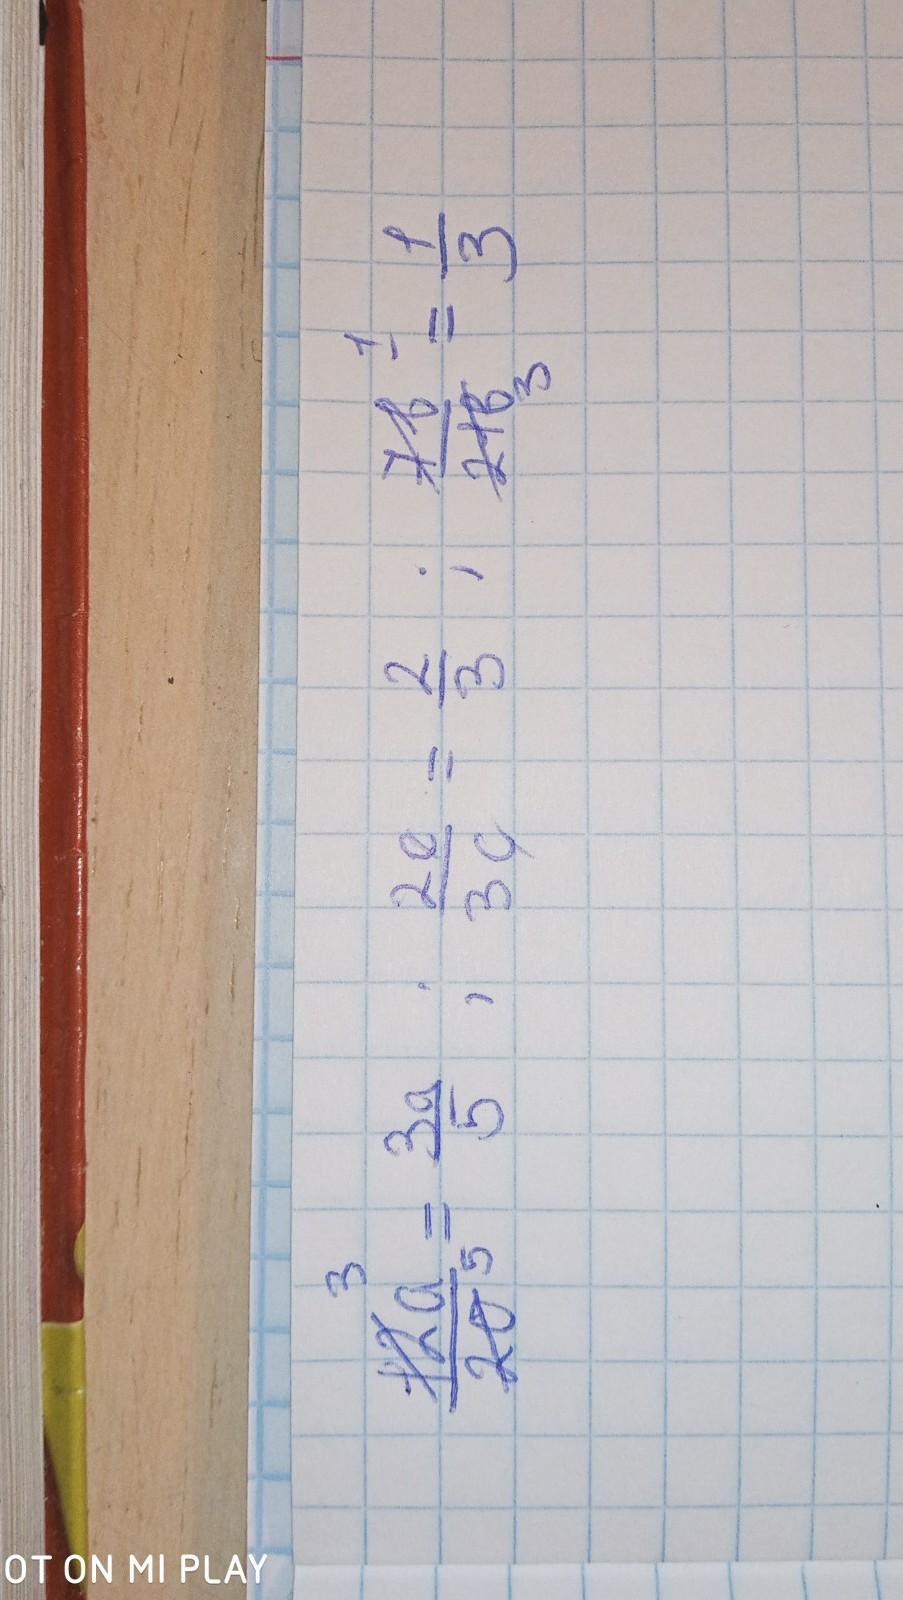 12a/20 = 3a/5 ; 2a/3a = 2/3 ; 7b/21b = 1/3
3 5 1 3
OT ON MI PLAY